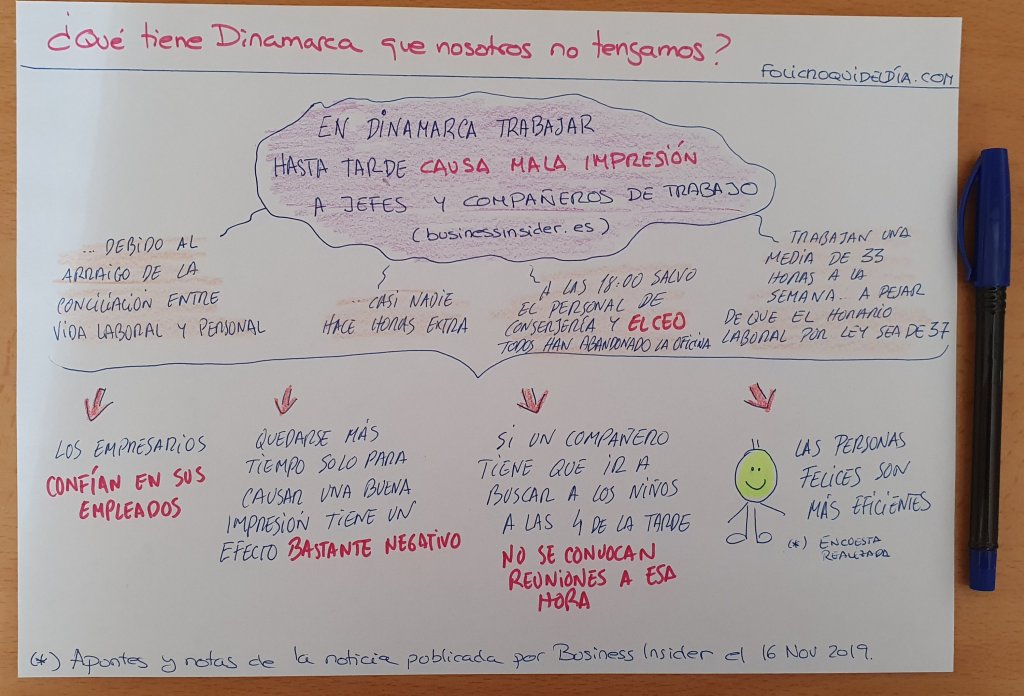 ¿Qué tiene Dinamarca que nosotros no tengamos?
FOLIOROQUIDELDÍA.COM
EN DINAMARCA TRABAJAR
HASTA TARDE CAUSA MALA IMPRESIÓN
A JEFES Y COMPAÑEROS DE TRABAJO
(businessinsider.es)
... DEBIDO AL
ARRAIGO DE LA
CONCILIACIÓN ENTRE
VIDA LABORAL Y PERSONAL
...CASI NADIE
HACE HORAS EXTRA
A LAS 18:00 SALVO
EL PERSONAL DE
CONSERJERÍA Y EL CEO
TODOS HAN ABANDONADO LA OFICINA
TRABAJAN UNA
MEDIA DE 33
HORAS A LA
SEMANA... A PEJAR
DE QUE EL HORARIO
LABORAL POR LEY SEA DE 37
LOS EMPRESARIOS
CONFÍAN EN SUS
EMPLEADOS
QUEDARSE MÁS
TIEMPO SOLO PARA
CAUSAR UNA BUENA
IMPRESIÓN TIENE UN
EFECTO BASTANTE NEGATIVO
SI UN COMPAÑERO
TIENE QUE IR A
BUSCAR A LOS NIÑOS
A LAS 4 DE LA TARDE
NO SE CONVOCAN
REUNIONES A ESA
HORA
LAS PERSONAS
FELICES SON
MÁS EFICIENTES
(*) ENCUESTA
REALIZADA
(*) Apuntes y notas de la noticia publicada por Business Insider el 16 Nov 2019.